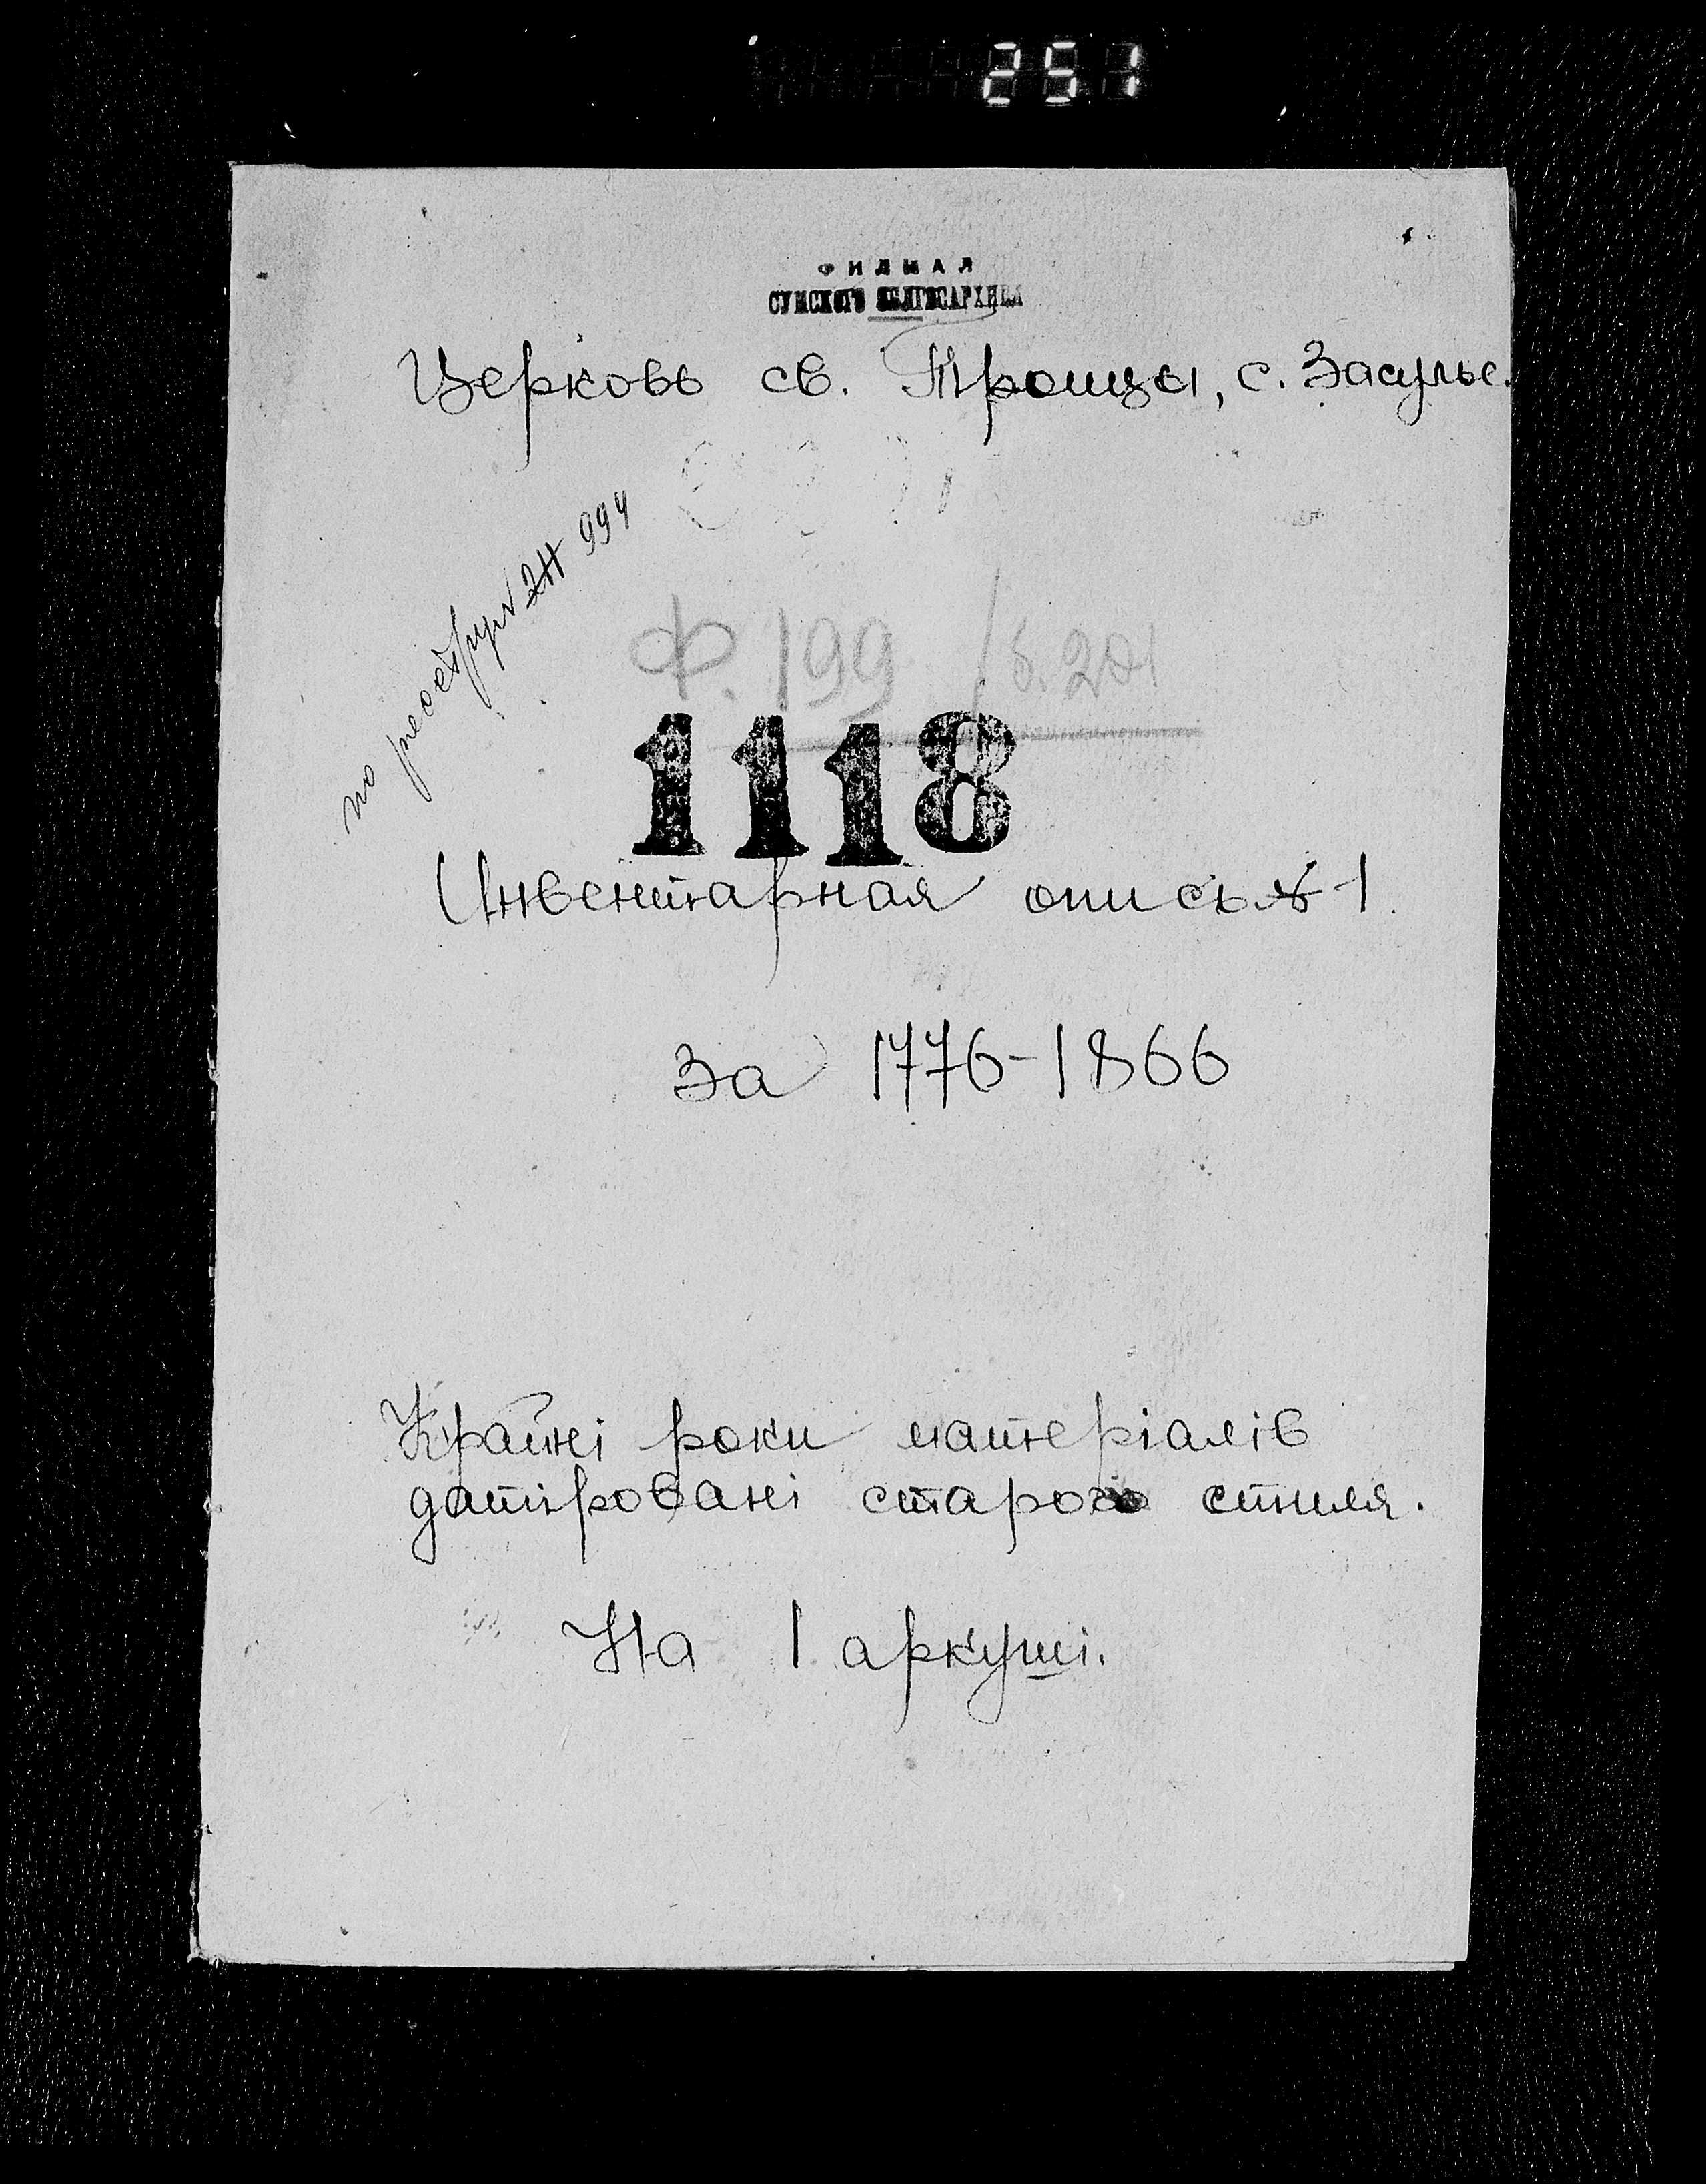 251
ФИЛИАЛ
СУМСКОГО ОБЛГОСАРХИВА
Церковь св. Троицы, с. Засулье.
по реестру № 211 994
Ф. 199
1118
Инвентарная опись № 1
за 1776-1866
Крайні роки матеріалів
датіровані старого стиля.
На 1 аркуші.